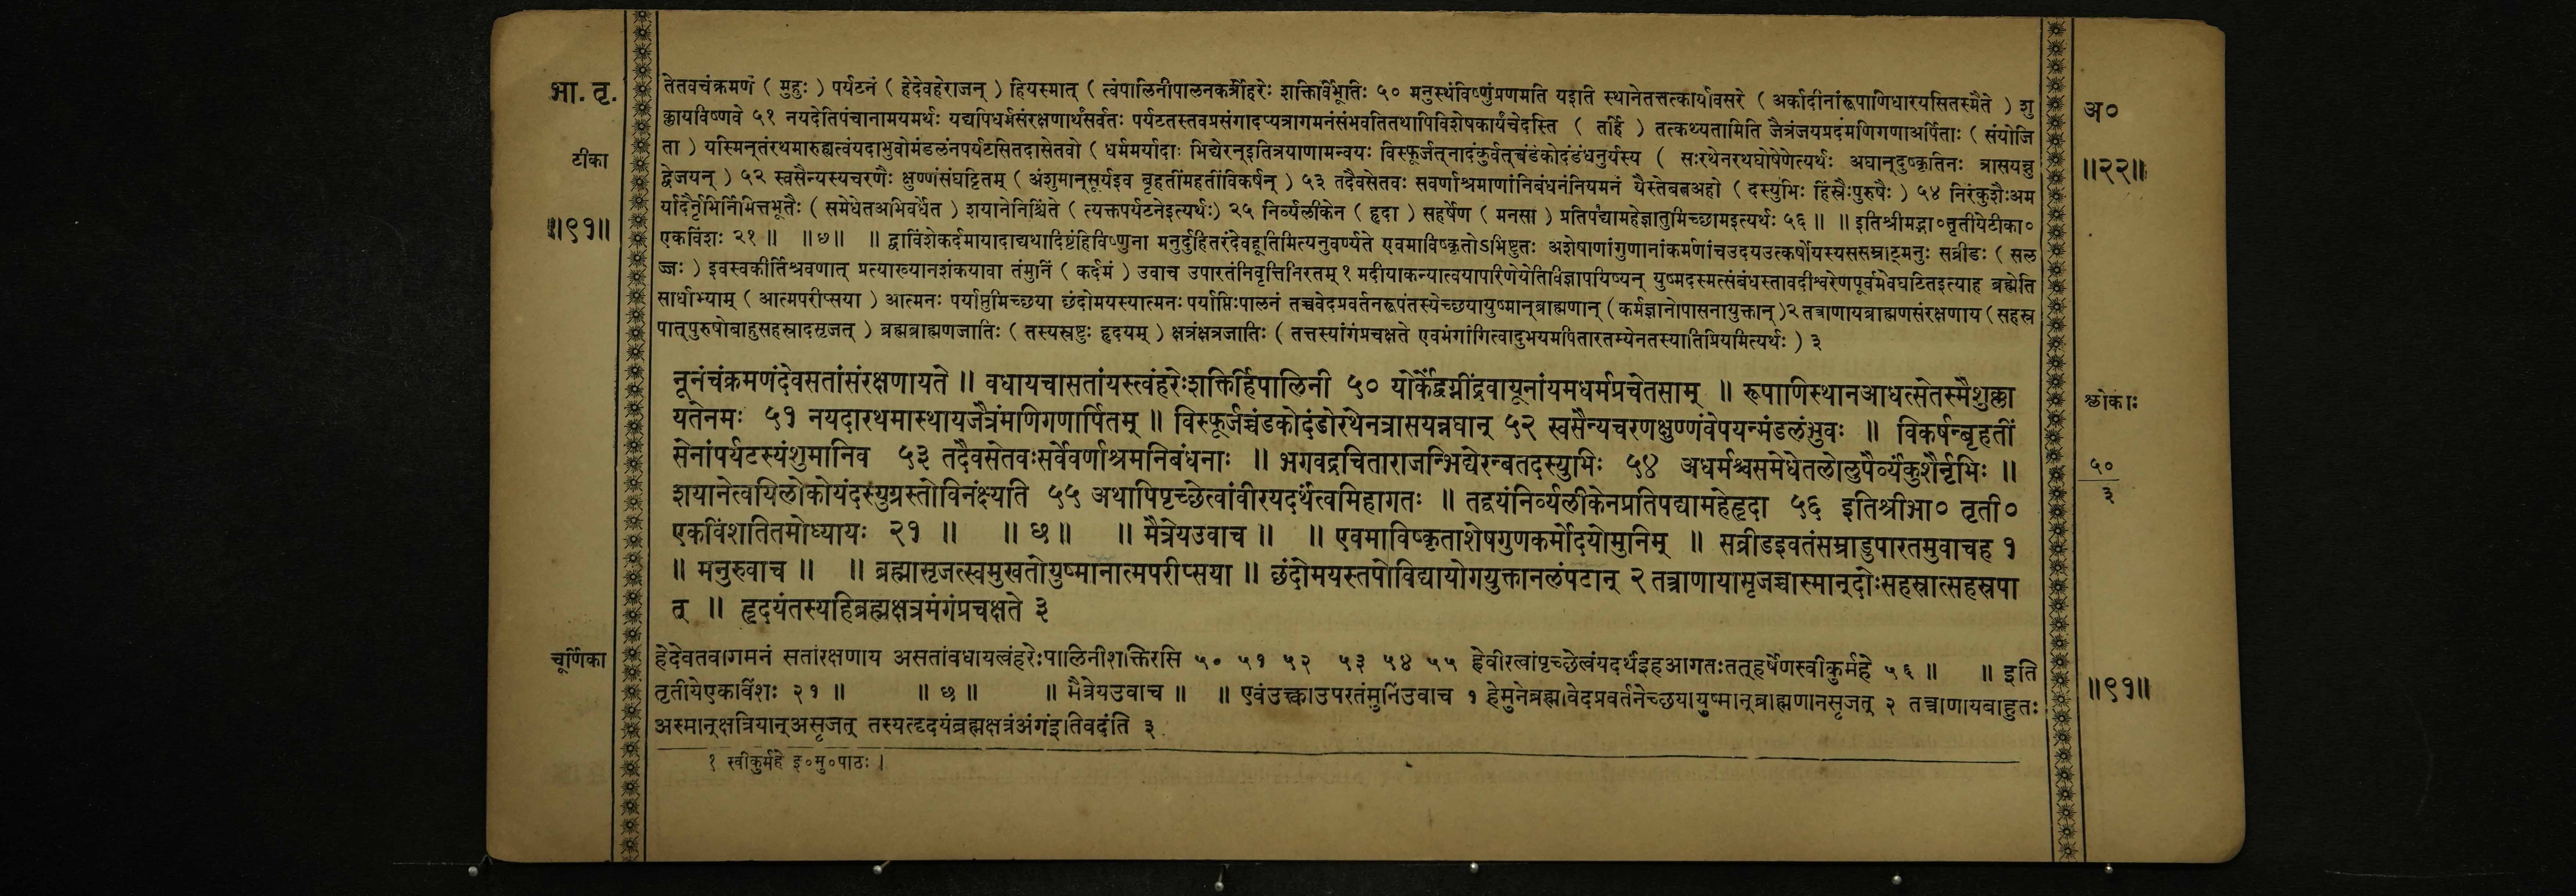 भा. तृ.
टीका
॥९१॥
तेतवचंक्रमणं ( मुहुः ) पर्यटनं ( हेदेवहेराजन् ) हियस्मात् ( त्वंपालिनीपालनकर्त्रीहरेः शक्तिर्विभूतिः ५० मनुस्थंविष्णुंप्रणमति यइति स्थानेतत्तत्कार्यावसरे ( अर्कादीनांरूपाणिधारयसितस्मैते ) शु
क्लायविष्णवे ५१ नयदेतिपंचानामयमर्थः यद्यपिधर्मसंरक्षणार्थंसर्वतः पर्यटतस्तवप्रसंगादप्यत्रागमनंसंभवतितथापिविशेषकार्यंचेदस्ति ( तर्हि ) तत्कथ्यतामिति जैत्रंजयप्रदंमणिगणाअर्पिताः ( संयोजि
ता ) यस्मिन्‌तंरथमारुह्यत्वंयदाभुवोमंडलंनपर्यटसितदासेतवो ( धर्ममर्यादाः भिद्येरन्‌इतित्रयाणामन्वयः विस्फूर्जत्‌नादंकुर्वत्‌चंडंकोदंडंधनुर्यस्य ( सःरथेनरथघोषेणेत्यर्थः अघान्‌दुष्कृतिनः त्रासयन्नु
द्वेजयन् ) ५२ स्वसैन्यस्यचरणैः क्षुण्णंसंघट्टितम् ( अंशुमान्‌सूर्यइव बृहतींमहतींविकर्षन् ) ५३ तदैवसेतवः सवर्णाश्रमाणांनिबंधनंनियमनं यैस्तेबतअहो ( दस्युभिः हिंस्रैःपुरुषैः ) ५४ निरंकुशैःअम
र्यादैर्नृभिर्निमित्तभूतैः ( समेधेतअभिवर्धेत ) शयानेनिश्चिंते ( त्यक्तपर्यटनेइत्यर्थः) २५ निर्व्यलीकेन ( हृदा ) सहर्षेण ( मनसा ) प्रतिपद्यामहेज्ञातुमिच्छामइत्यर्थः ५६ ॥ ॥ इतिश्रीमद्भा०तृतीयेटीका०
एकविंशः २१ ॥ ॥ छ ॥ ॥ द्वाविंशेकर्दमायादाद्यथादिष्टंहिविष्णुना मनुर्दुहितरंदेवहूतिमित्यनुवर्ण्यते एवमाविष्कृतोऽभिष्टुतः अशेषाणांगुणानांकर्मणांचउदयउत्कर्षोयस्यससम्राट्मनुः सव्रीडः ( सल
ज्जः ) इवस्वकीर्तिश्रवणात् प्रत्याख्यानशंकयावा तंमुनिं ( कर्दमं ) उवाच उपारतंनिवृत्तिनिरतम् १ मदीयाकन्यात्वयापरिणेयेतिविज्ञापयिष्यन् युष्मदस्मत्संबंधस्तावदीश्वरेणपूर्वमेवघटितइत्याह ब्रह्मेति
सार्धाभ्याम् ( आत्मपरीप्सया ) आत्मनः पर्याप्तुमिच्छया छंदोमयस्यात्मनः पर्याप्तिःपालनं तच्चवेदप्रवर्तनरूपंतस्येच्छयायुष्मान्‌ब्राह्मणान् ( कर्मज्ञानोपासनायुक्तान् )२ तत्राणायब्राह्मणसंरक्षणाय ( सहस्र
पात्‌पुरुषोबाहुसहस्रादसृजत् ) ब्रह्मब्राह्मणजातिः ( तस्यस्रष्टुः हृदयम् ) क्षत्रंक्षत्रजातिः ( तत्तस्यांगंप्रचक्षते एवमंगांगित्वादुभयमपितारतम्येनतस्यातिप्रियमित्यर्थः ) ३
नूनंचंक्रमणंदेवसतांसंरक्षणायते ॥ वधायचासतांयस्त्वंहरेःशक्तिर्हिपालिनी ५० योर्केंद्वग्नींद्रवायूनांयमधर्मप्रचेतसाम् ॥ रूपाणिस्थानआधत्सेतस्मैशुक्ला
यतेनमः ५१ नयदारथमास्थायजैत्रंमणिगणार्पितम् ॥ विस्फूर्जच्चंडकोदंडोरथेनत्रासयन्नघान् ५२ स्वसैन्यचरणक्षुण्णंवेपयन्मंडलंभुवः ॥ विकर्षन्बृहतीं
सेनांपर्यटस्यंशुमानिव ५३ तदैवसेतवःसर्वेवर्णाश्रमनिबंधनाः ॥ भगवद्रचिताराजन्भिद्येरन्बतदस्युभिः ५४ अधर्मश्चसमेधेतलोलुपैर्व्यंकुशैर्नृभिः ॥
शयानेत्वयिलोकोयंदस्युग्रस्तोविनंक्ष्यति ५५ अथापिपृच्छेत्वांवीरयदर्थंत्वमिहागतः ॥ तद्वयंनिर्व्यलीकेनप्रतिपद्यामहेहृदा ५६ इतिश्रीभा० तृती०
एकविंशतितमोध्यायः २१ ॥ ॥ छ ॥ ॥ मैत्रेयउवाच ॥ ॥ एवमाविष्कृताशेषगुणकर्मोदयोमुनिम् ॥ सव्रीडइवतंसम्राडुपारतमुवाचह १
॥ मनुरुवाच ॥ ॥ ब्रह्मासृजत्स्वमुखतोयुष्मानात्मपरीप्सया ॥ छंदोमयस्तपोविद्यायोगयुक्तानलंपटान् २ तत्राणायासृजच्चास्मान्‌दोःसहस्रात्सहस्रपा
त् ॥ हृदयंतस्यहिब्रह्मक्षत्रमंगंप्रचक्षते ३
चूर्णिका
हेदेवतवागमनं सतांरक्षणाय असतांवधायत्वंहरेःपालिनीशक्तिरसि ५० ५१ ५२ ५३ ५४ ५५ हेवीरत्वांपृच्छेत्वंयदर्थंइहआगतःतत्‌हर्षेणस्वीकुर्महे ५६ ॥ ॥ इति
तृतीयेएकविंशः २१ ॥ ॥ छ ॥ ॥ मैत्रेयउवाच ॥ ॥ एवंउक्त्वाउपरतंमुनिंउवाच १ हेमुनेब्रह्मावेदप्रवर्तनेच्छयायुष्मान्‌ब्राह्मणानसृजत् २ तत्राणायबाहुतः
अस्मान्‌क्षत्रियान्‌असृजत् तस्यतद्धृदयंब्रह्मक्षत्रंअंगंइतिवदंति ३
१ स्वीकुर्महे इ०मु०पाठः ।
अ०
॥२२॥
श्लोकाः
५०
३
॥९१॥